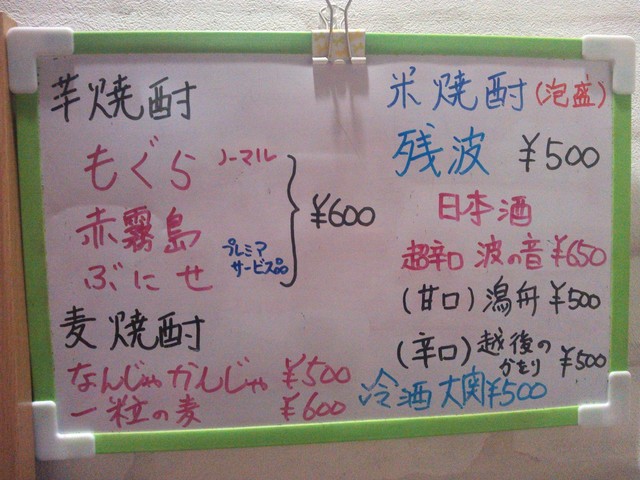 芋焼酎
もぐら ノーマル
赤霧島
プレミア
サービス品
ぶにせ
¥600
麦焼酎
なんじゃかんじゃ ¥500
一粒の麦 ¥600
米焼酎(泡盛)
残波 ¥500
日本酒
超辛口 波の音 ¥650
(甘口) 潟舟 ¥500
(辛口) 越後の
かをり ¥500
冷酒 大関 ¥500